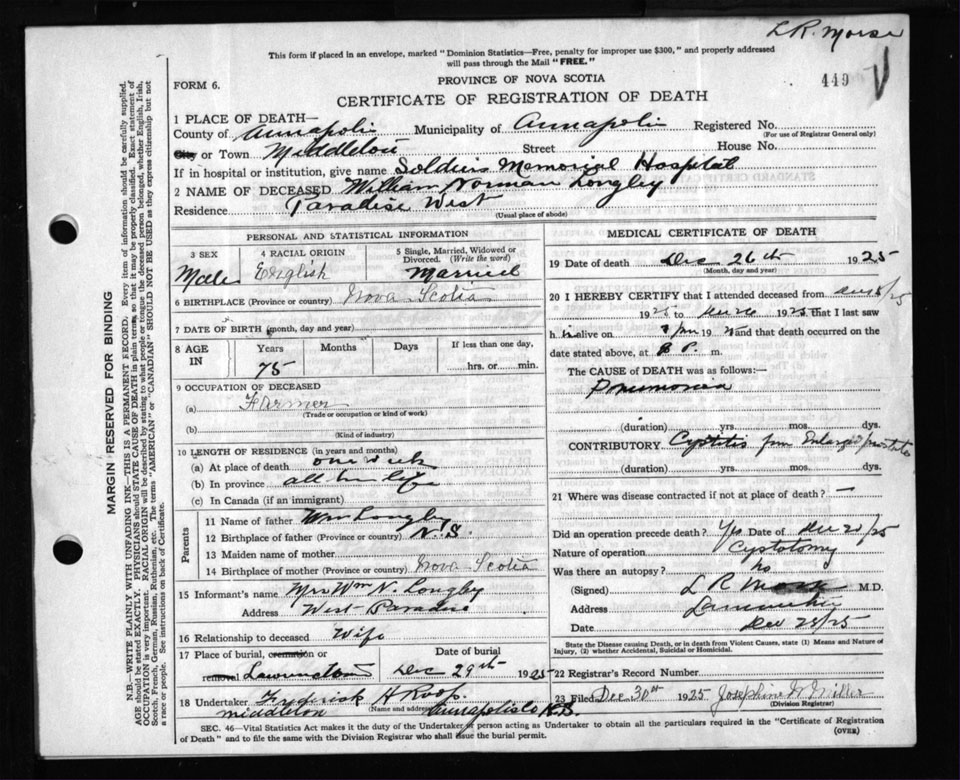 L.R. Morse
This form if placed in an envelope, marked "Dominion Statistics—Free, penalty for improper use $300," and properly addressed
will pass through the Mail "FREE."
449
FORM 6.
PROVINCE OF NOVA SCOTIA
CERTIFICATE OF REGISTRATION OF DEATH
1 PLACE OF DEATH—
County of Annapolis Municipality of Annapolis Registered No.
(For use of Registrar General only)
City or Town Middleton Street House No.
If in hospital or institution, give name Soldiers Memorial Hospital
2 NAME OF DECEASED William Norman Longley
Residence Paradise West
(Usual place of abode)
PERSONAL AND STATISTICAL INFORMATION
3 SEX 4 RACIAL ORIGIN 5 Single, Married, Widowed or
Divorced. (Write the word)
Male English Married
6 BIRTHPLACE (Province or country) Nova Scotia
7 DATE OF BIRTH (month, day and year)
8 AGE IN Years Months Days If less than one day,
75 hrs. or min.
9 OCCUPATION OF DECEASED
(a) Farmer
(Trade or occupation or kind of work)
(b)
(Kind of industry)
10 LENGTH OF RESIDENCE (in years and months)
(a) At place of death one week
(b) In province all his life
(c) In Canada (if an immigrant)
Parents
11 Name of father Wm Longley
12 Birthplace of father (Province or country) N.S.
13 Maiden name of mother
14 Birthplace of mother (Province or country) Nova Scotia
15 Informant's name Mrs Wm N. Longley
Address West Paradise
16 Relationship to deceased Wife
17 Place of burial, cremation or Date of burial
removal Lawrencetown Dec 29th 1925
18 Undertaker Frederick H Roop
(Name and address)
Middleton Annapolis Co N.S
MEDICAL CERTIFICATE OF DEATH
19 Date of death Dec 26th 1925
(Month, day and year)
20 I HEREBY CERTIFY that I attended deceased from
1925 to Dec 26 1925 that I last saw
h is alive on 19 and that death occurred on the
date stated above, at 8 P. m.
The CAUSE OF DEATH was as follows:—
Pneumonia
(duration) yrs. mos. dys.
CONTRIBUTORY Cystitis from Enlarged prostate
(duration) yrs. mos. dys.
21 Where was disease contracted if not at place of death? —
Did an operation precede death? Yes Date of Dec 20/25
Nature of operation Cystotomy
Was there an autopsy? no
(Signed) L R Morse M.D.
Address
Date Dec 28/25
State the Disease causing Death, or in death from Violent Causes, state (1) Means and Nature of
Injury, (2) whether Accidental, Suicidal or Homicidal.
22 Registrar's Record Number
23 Filed Dec 30th 1925 Josephine W Miller
(Division Registrar)
SEC. 46—Vital Statistics Act makes it the duty of the Undertaker or person acting as Undertaker to obtain all the particulars required in the "Certificate of Registration
of Death" and to file the same with the Division Registrar who shall issue the burial permit.
(OVER)
MARGIN RESERVED FOR BINDING
N.B.—WRITE PLAINLY WITH UNFADING INK—THIS IS A PERMANENT RECORD. Every item of information should be carefully supplied.
AGE should be stated EXACTLY. PHYSICIANS should STATE CAUSE OF DEATH in plain terms, so that it may be properly classified. Exact statement of
OCCUPATION is very important. RACIAL ORIGIN will be described by stating to what people or tongue the deceased person belonged, whether English, Irish,
Scotch, French, German, Russian, Ruthenian, etc. The terms "AMERICAN" or "CANADIAN" SHOULD NOT BE USED as they express citizenship but not
a race or people. See instructions on back of Certificate.